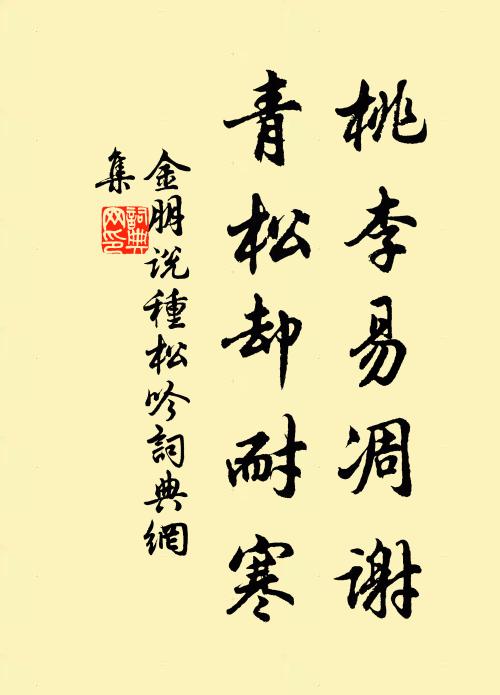 桃李易凋谢
青松却耐寒
金朋说種松吟詞典網
集
詞典
网印